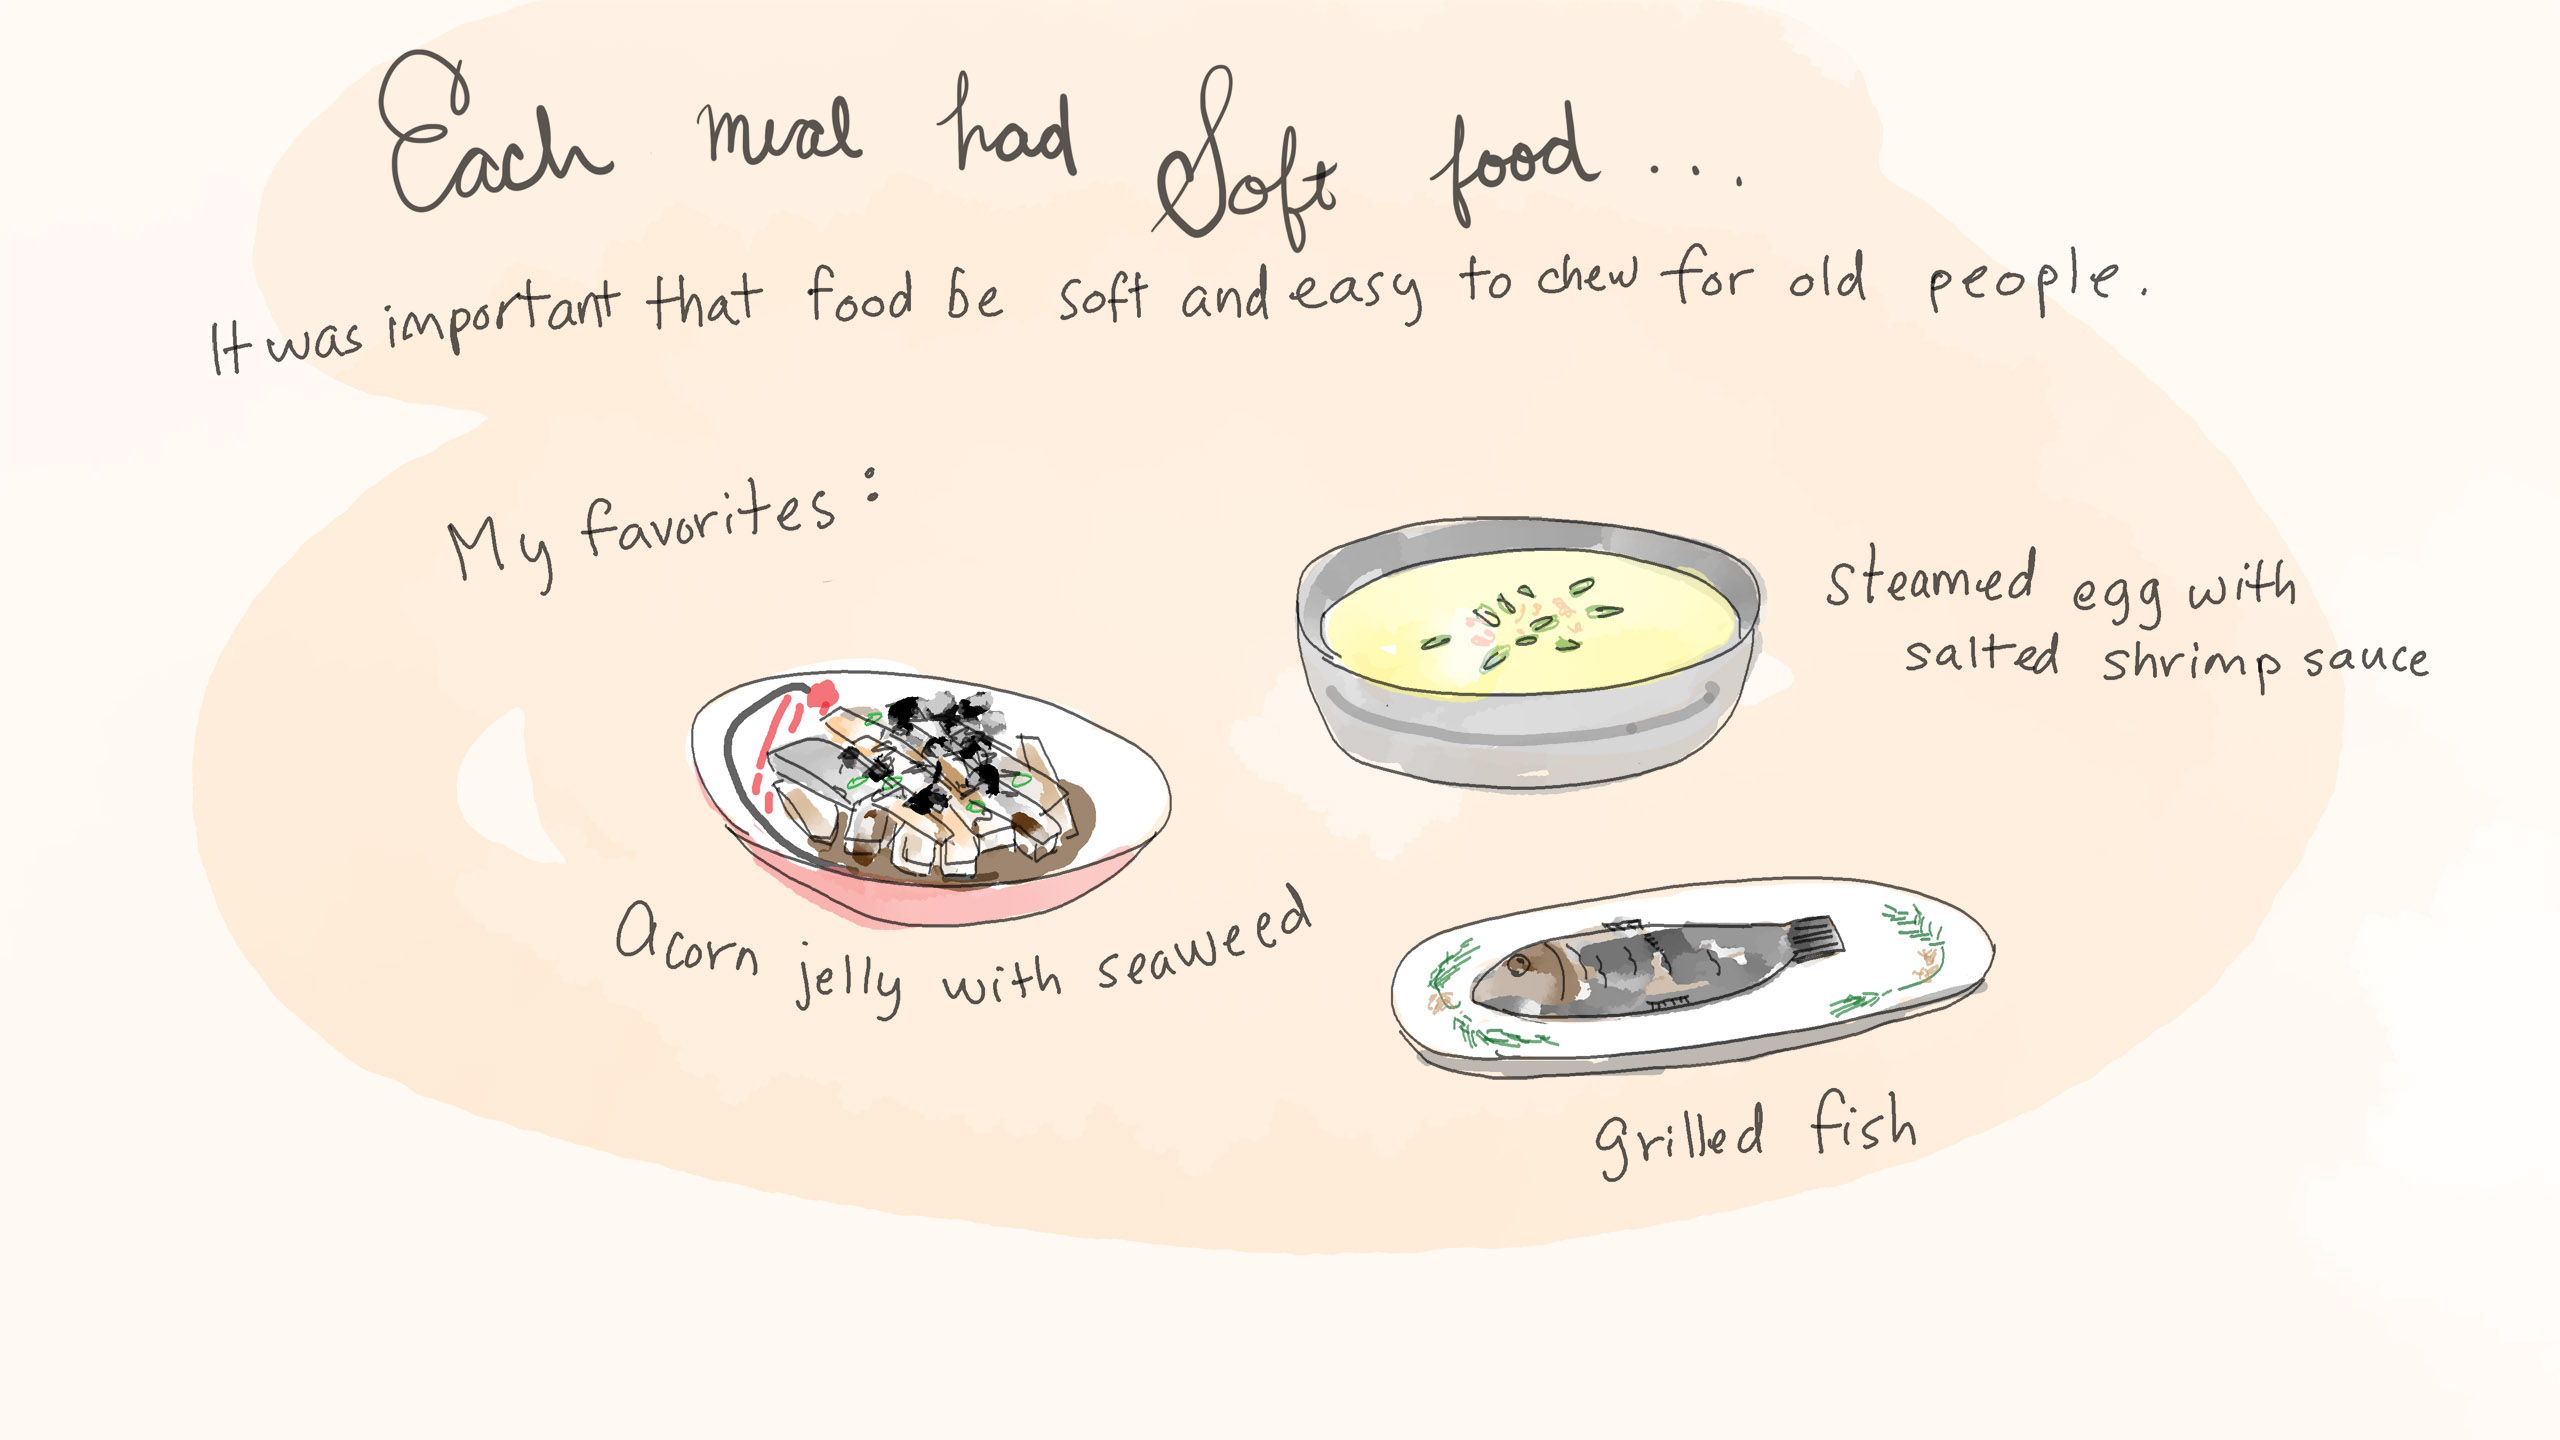 Each meal had Soft food ...
It was important that food be soft and easy to chew for old people.
My favorites:
steamed egg with
salted shrimp sauce
Acorn jelly with seaweed
grilled fish